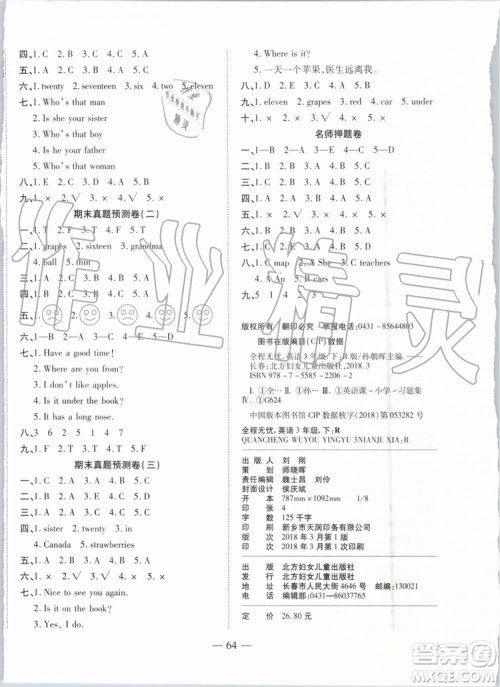 四、1. C 2. B 3. C 4. B 5. A
六、1. twenty 2. seventeen 3. six 4. two 5. eleven
七、1. Who's that man
2. Is she your sister
3. Who's that boy
4. Is he your father
5. Who's that woman
八、1. C 2. E 3. D 4. A 5. B
九、1. × 2. √ 3. × 4. √ 5. ×
期末真题预测卷(二)
一、1. grapes 2. sixteen 3. grandma
4. ball 5. thin
二、1. A 2. B 3. C 4. B 5. A
四、1. A 2. B 3. C 4. B
五、1.
六、1—B 2—A 3—D 4—E 5—C
七、1. Have a good time!
2. Where are you from?
3. I don't like apples.
4. It is under the map.
5. It has a long nose.
八、3 6 2 5 1 4 7
期末真题预测卷(三)
一、1. C 2. B 3. C 4. A 5. C
四、1. C 2. C 3. A 4. B 5. A
六、1. sister 2. twenty 3. in
4. Canada 5. strawberries
七、1. Nice to see you again.
2. Is it on the book?
3. Is it in the book?
4. Where is it?
5. 一天一个苹果,医生远离我。
八、1. C 2. D 3. A 4. E 5. B
九、1. eleven 2. grapes 3. red 4. car 5. and
十、1. × 2. × 3. √ 4. √ 5. ×
名师押题卷
一、1—B 2—A 3—D 4—E 5—C
六、1. √ 2. × 3. × 4. √ 5. √
七、1. B 2. C 3. C 4. A 5. B
八、1. C map 2. A day 3. C teachers
4. A An 5. B cars
版权所有/翻印必究/举报电话:0431-85644803
图书在版编目(CIP)数据
全程无忧. 英语3年级. 下:R版/孙朝晖主编. —
长春:北方妇女儿童出版社,2018.3
ISBN 978-7-5585-2206-2
Ⅰ. ①全… Ⅱ. ①孙… Ⅲ. ①英语课-小学-习题集
Ⅳ. ①G624
中国版本图书馆 CIP 数据核字(2018)第 053282 号
全程无忧. 英语3年级. 下:R
QUANCHENG WUYOU YINGYU 3NIANJI. XIA:R
出 版 人 刘 刚
策 划 师晓晖
责任编辑 魏士昌 刘伶
封面设计 侯庆斌
开 本 787mm×1092mm 1/8
印 张 4
字 数 125 千字
印 刷 新乡市天润印务有限公司
版 次 2018 年 3 月第 1 版
印 次 2018 年 3 月第 1 次印刷
出 版 北方妇女儿童出版社
发 行 北方妇女儿童出版社
地 址 长春市人民大街 4646 号 邮编:130021
电 话 0431-86037765
定 价 26.80 元
— 64 —
作业精灵